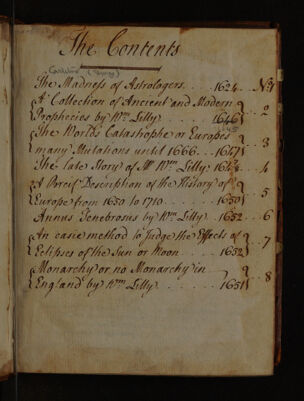 The Contents
The Madness of Astrologers . . . 1624 . . . No 1
A Collection of Ancient and Modern
Prophecies by Wm Lilly . . . . 1646 . . 2
1645
The Worlds Catastrophe or Europes
many Mutations until 1666 . . 1647 . . 3
The late Story of Mr Wm Lilly . 1648 . . . 4
A Breif Description of the History of
Europe from 1650 to 1710 . . . . 1650 . . 5
Annus Tenebrosus by Wm Lilly . . 1652 . . . 6
An easie method to Judge the Effects of
Eclipses of the Sun or Moon . . . . 1652 . . 7
Monarchy or no Monarchy in
England by Wm Lilly . . . . . . . 1651 . . 8